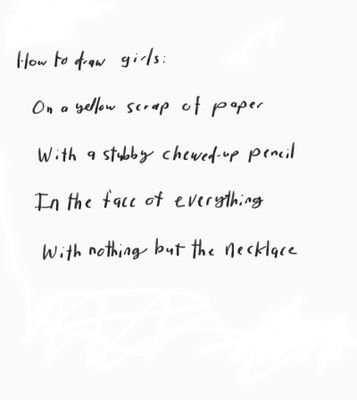 How to draw girls:
On a yellow scrap of paper
With a stubby chewed-up pencil
In the face of everything
With nothing but the necklace